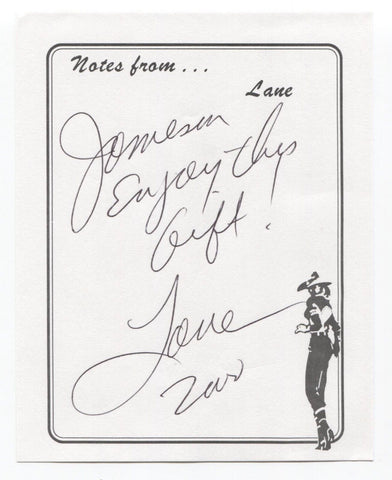 Notes from ...
Lane
Jameson
Enjoy this
Gift!
Lane